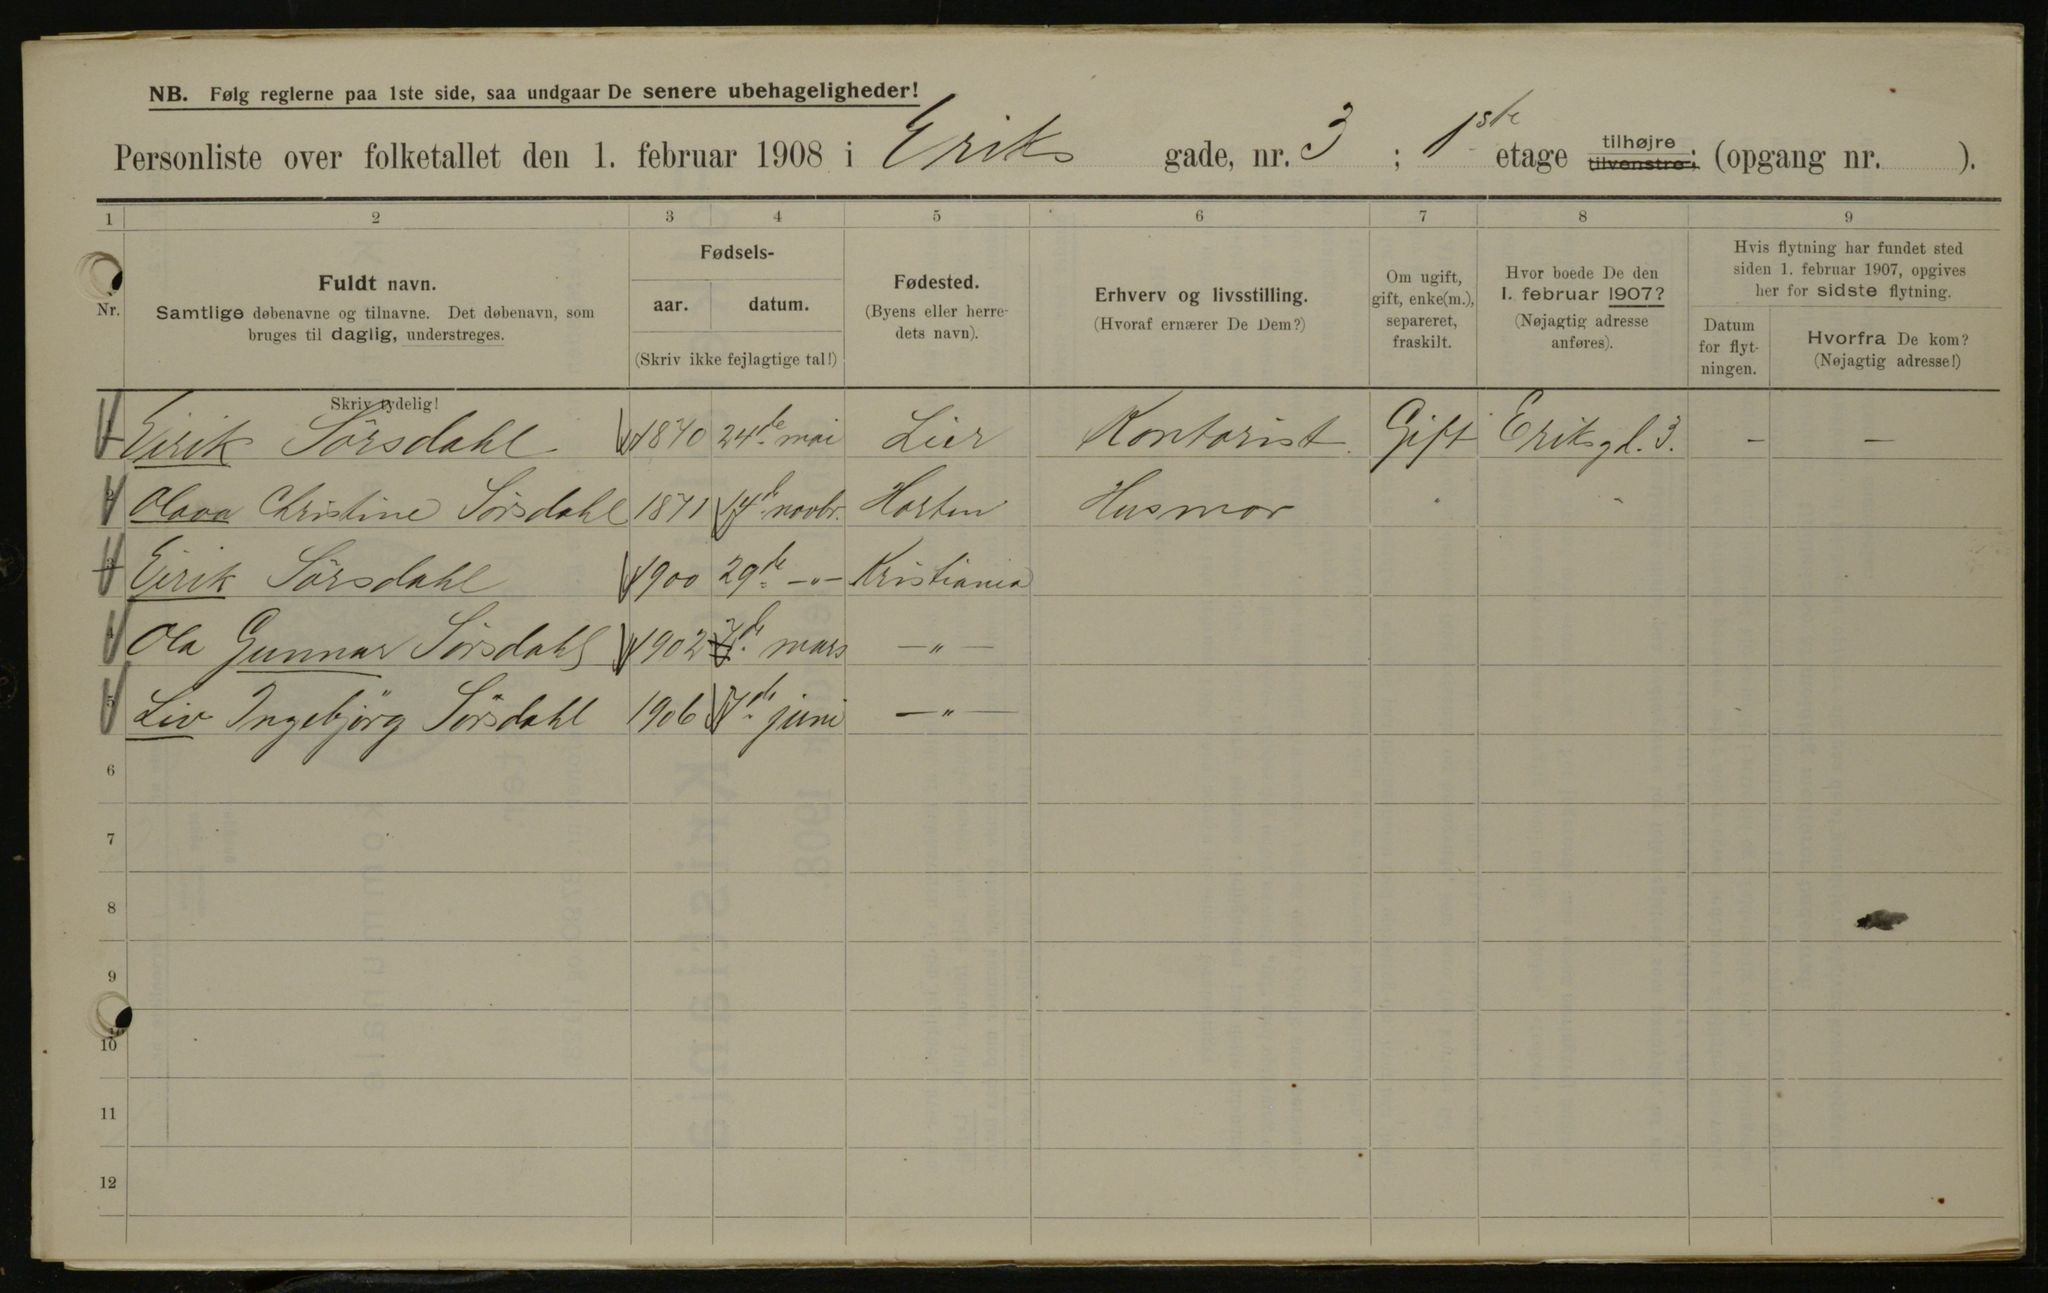 NB. Følg reglerne paa 1ste side, saa undgaar De senere ubehageligheder!
Personliste over folketallet den 1. februar 1908 i Eriks gade, nr. 3 ; 1ste etage tilhøjre tilvenstre; (opgang nr. ).
1 2 3 4 5 6 7 8 9
Nr.
Fuldt navn.
Samtlige døbenavne og tilnavne. Det døbenavn, som
bruges til daglig, understreges.
Skriv tydelig!
Fødsels-
aar. datum.
(Skriv ikke fejlagtige tal!)
Fødested.
(Byens eller herre-
dets navn).
Erhverv og livsstilling.
(Hvoraf ernærer De Dem?)
Om ugift,
gift, enke(m.),
separeret,
fraskilt.
Hvor boede De den
1. februar 1907?
(Nøjagtig adresse
anføres).
Hvis flytning har fundet sted
siden 1. februar 1907, opgives
her for sidste flytning.
Datum
for flyt-
ningen.
Hvorfra De kom?
(Nøjagtig adresse!)
1 Eirik Sörsdahl 1870 24de mai Lier Kontorist Gift Eriksgd. 3. — —
2 Olava Christine Sörsdahl 1871 14de novbr. Horten Husmor " "
3 Eirik Sörsdahl 1900 29de -"- Kristiania
4 Ola Gunnar Sörsdahl 1902 7de mars -"-
5 Liv Ingebjörg Sörsdahl 1906 7de juni -"-
6
7
8
9
10
11
12